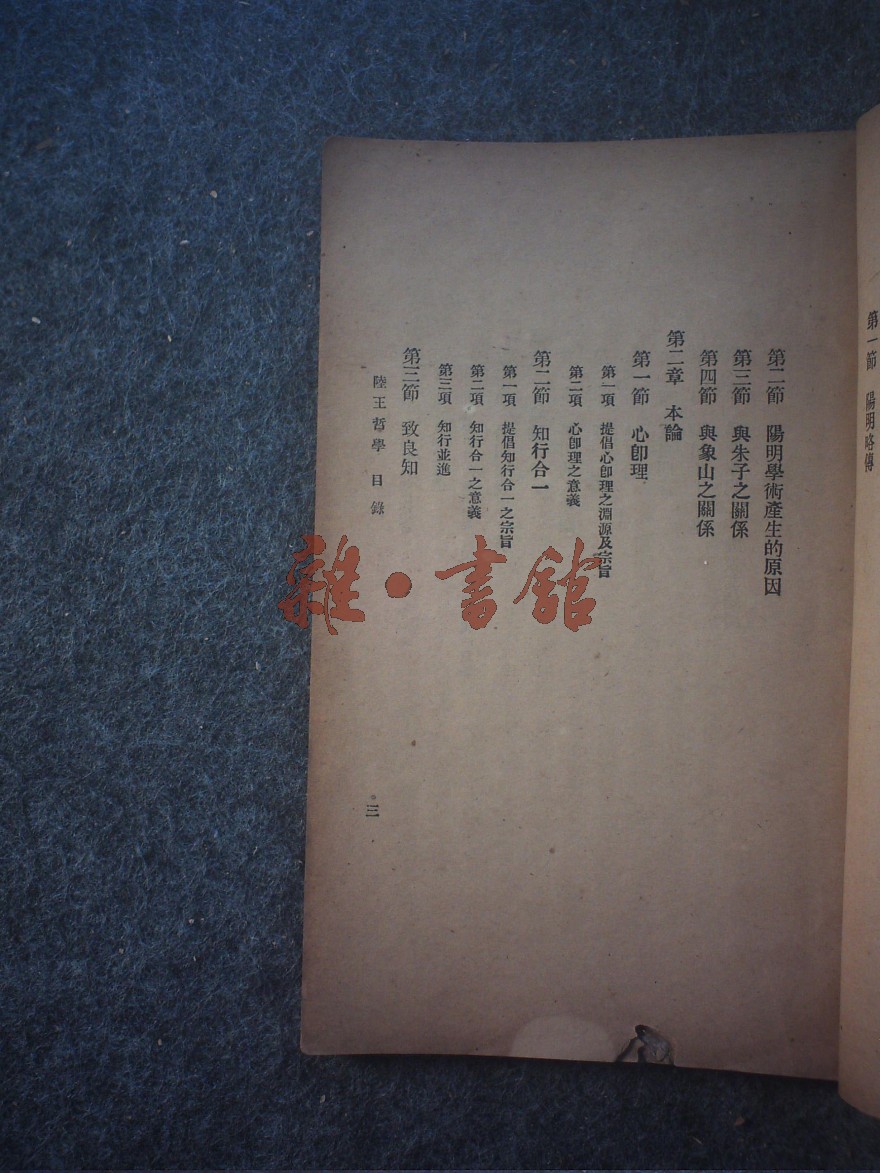 第一節　陽明略傳
第二節　陽明學術產生的原因
第三節　與朱子之關係
第四節　與象山之關係
第二章　本論
第一節　心卽理
第一項　提倡心卽理之淵源及宗旨
第二項　心卽理之意義
第二節　知行合一
第一項　提倡知行合一之宗旨
第二項　知行合一之意義
第三項　知行並進
第三節　致良知
陸王哲學　目錄
三
雜·書館